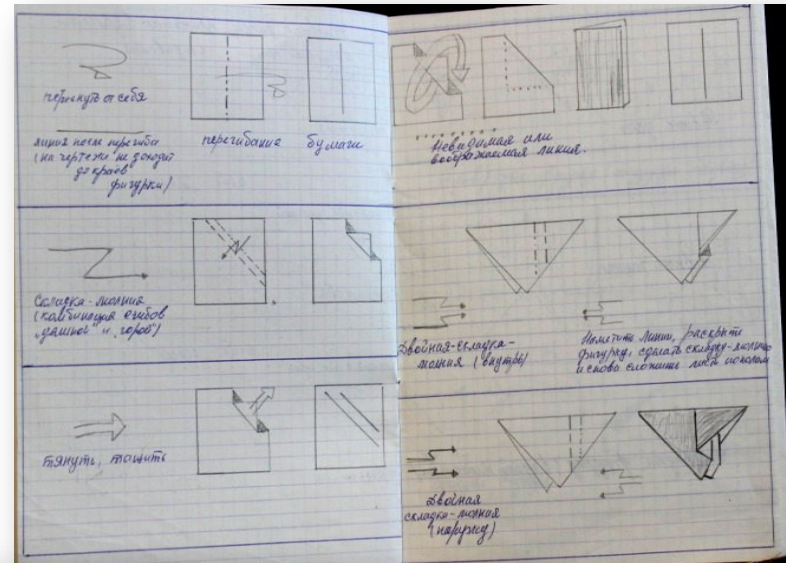 перегнуть от себя
линия после перегиба
(на чертеже не доходит
до краев
фигурки)
перегибание бумаги
Складка-молния
(комбинация сгибов
„долиной" и „горой")
тянуть, тащить
Невидимая или
воображаемая линия.
Двойная-складка-
молния (внутрь)
Наметить линии, раскрыть
фигурку, сделать складку-молнию
и снова сложить лист пополам
Двойная
складка-молния
(наружу)